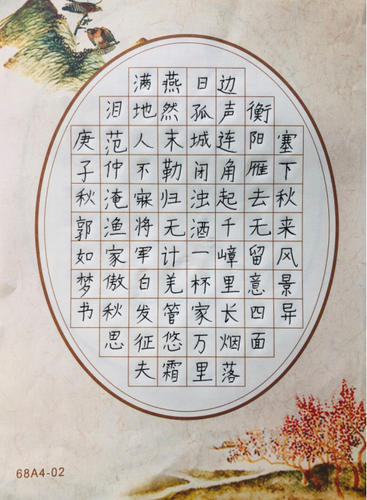 塞下秋来风景异
衡阳雁去无留意四面
边声连角起千嶂里长烟落
日孤城闭浊酒一杯家万里
燕然未勒归无计羌管悠霜
满地人不寐将军白发征夫
泪范仲淹渔家傲秋思
庚子秋郭如梦书
68A4-02